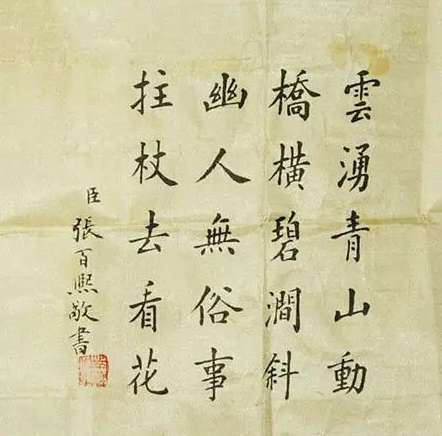 雲湧青山動
橋橫碧澗斜
幽人無俗事
拄杖去看花
臣張百熙敬書